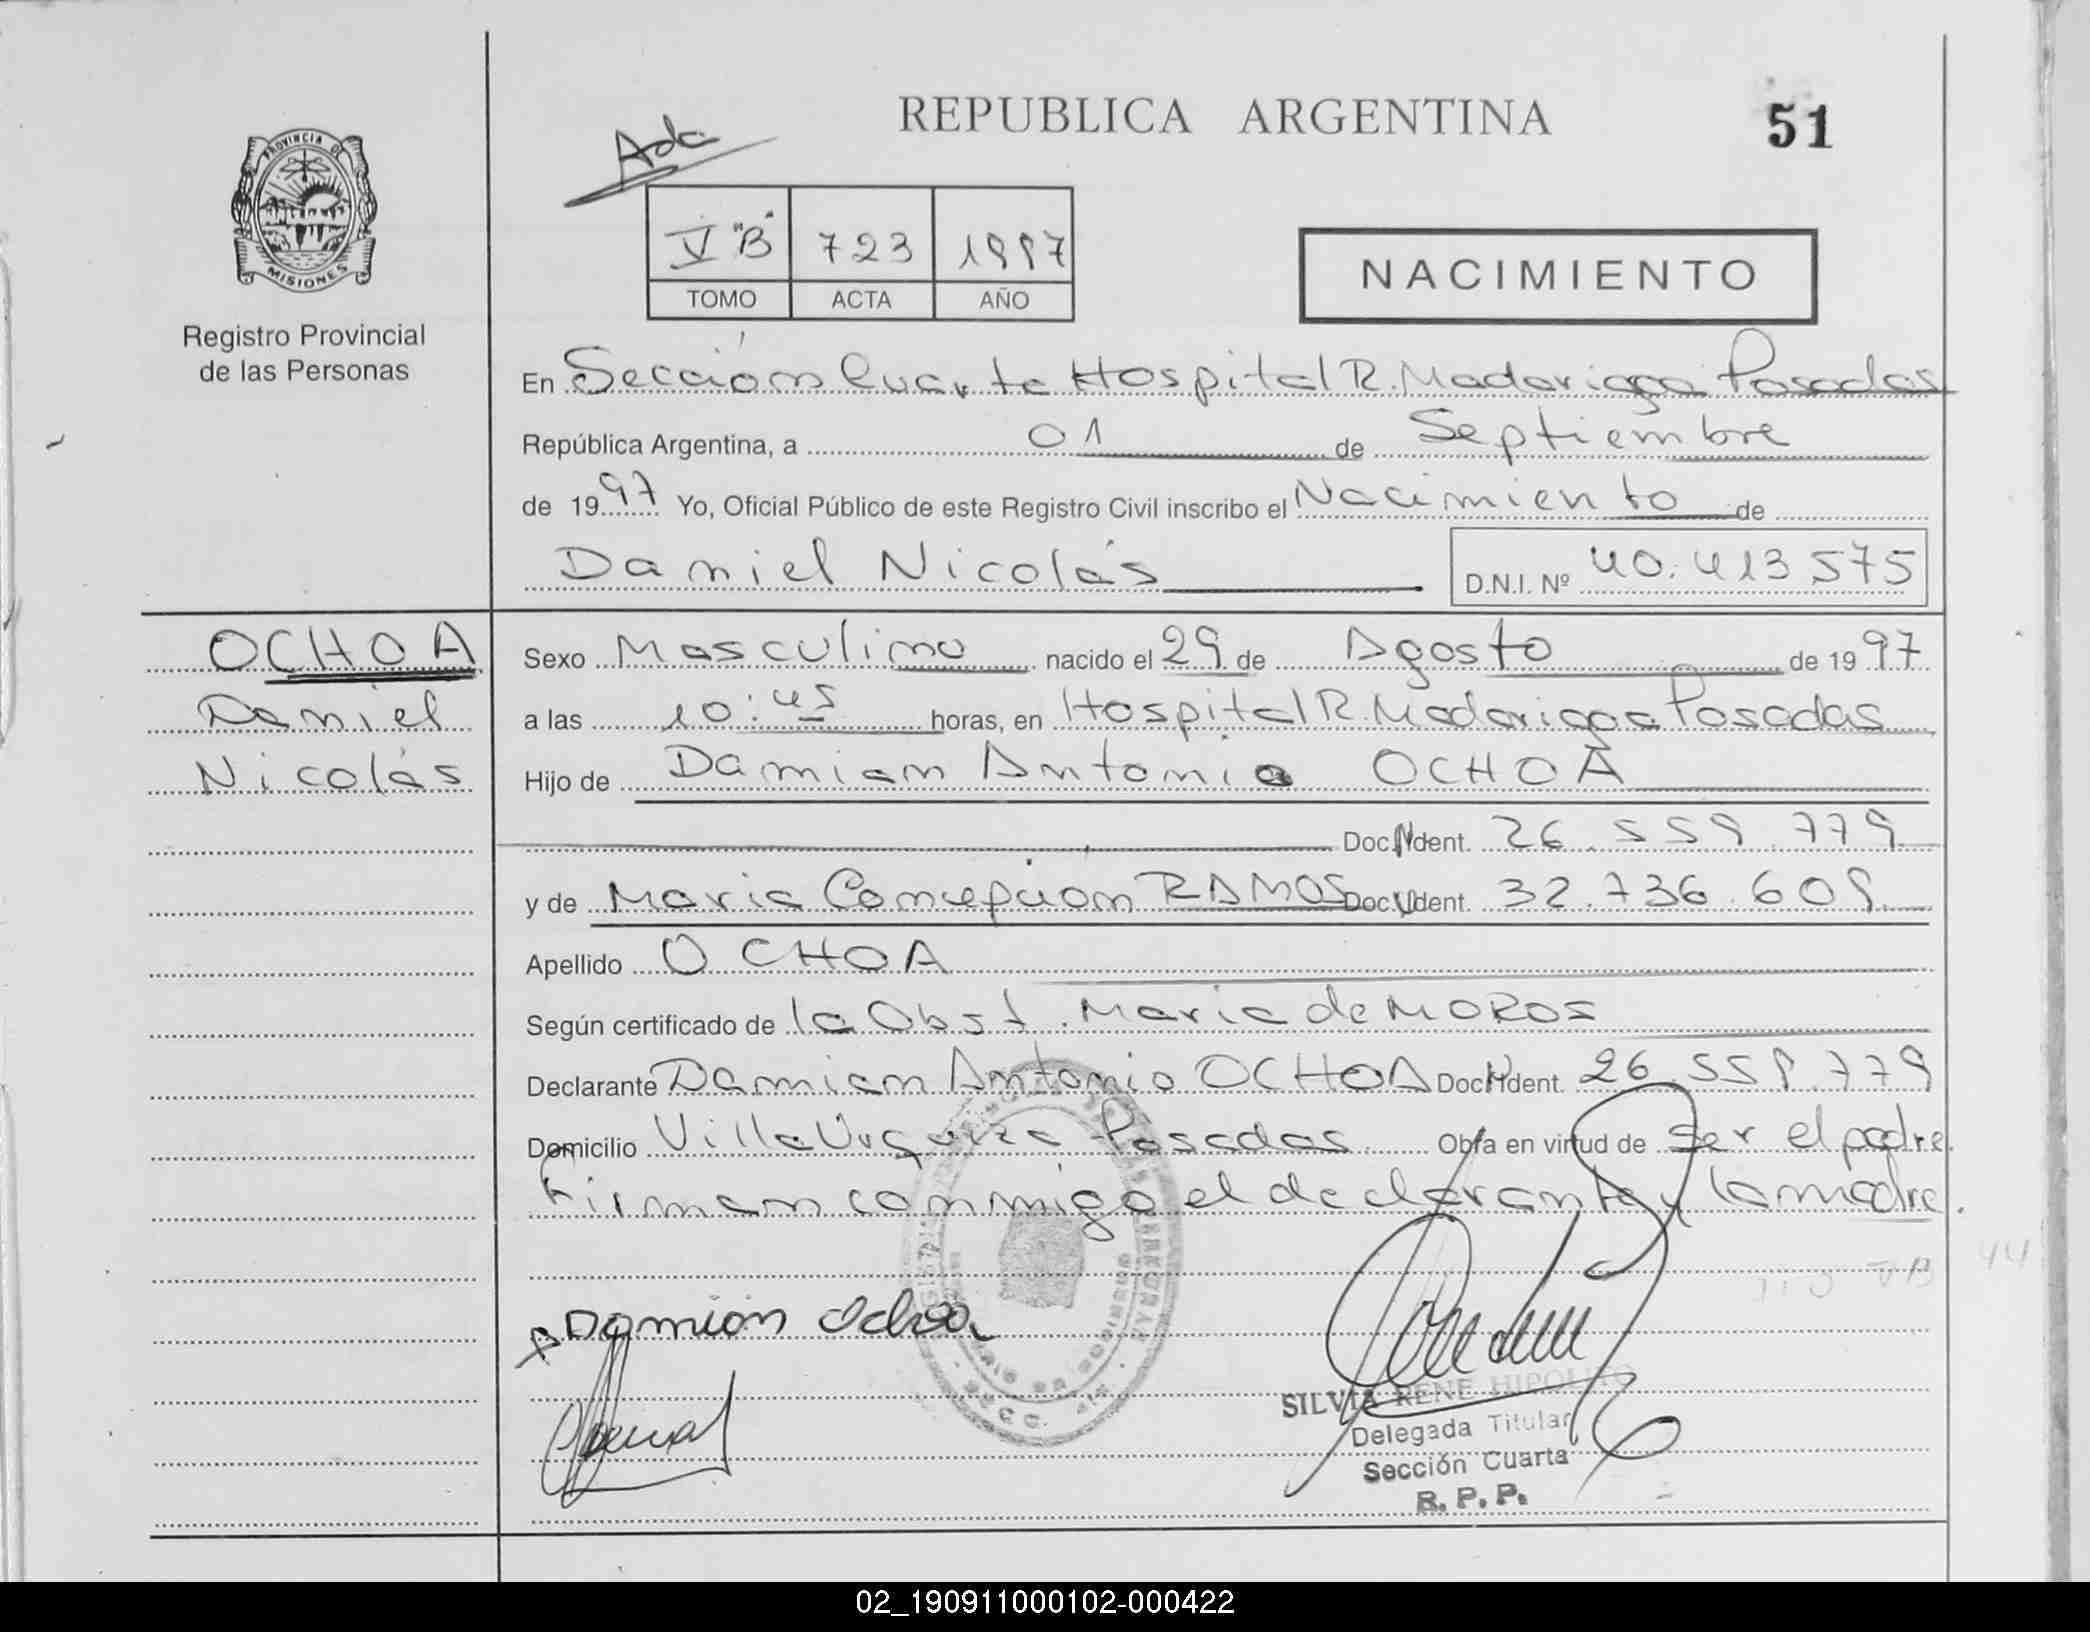 REPUBLICA ARGENTINA
51
Ada
PROVINCIA DE
MISIONES
Registro Provincial
de las Personas
V "B" 723 1997
TOMO ACTA AÑO
NACIMIENTO
En Sección Cuarta Hospital R. Madariaga Posadas
República Argentina, a 01 de Septiembre
de 1997 Yo, Oficial Público de este Registro Civil inscribo el Nacimiento de
Daniel Nicolás D.N.I. Nº 40.413575
OCHOA
Daniel
Nicolás
Sexo Masculino nacido el 29 de Agosto de 1997
a las 10:45 horas, en Hospital R. Madariaga Posadas
Hijo de Damian Antonio OCHOA
Doc. Ident. 26.559.779
y de Maria Concepción RAMOS Doc. Ident. 32.736.609
Apellido OCHOA
Según certificado de la Obst. Maria de MOROS
Declarante Damian Antonio OCHOA Doc. Ident. 26.559.779
Domicilio Villa Urquiza Posadas Obra en virtud de ser el padre.
Firman conmigo el declarante y la madre.
Damión Ochoa
SILVIA RENE HIPOLITO
Delegada Titular
Sección Cuarta
R. P. P.
02_190911000102-000422